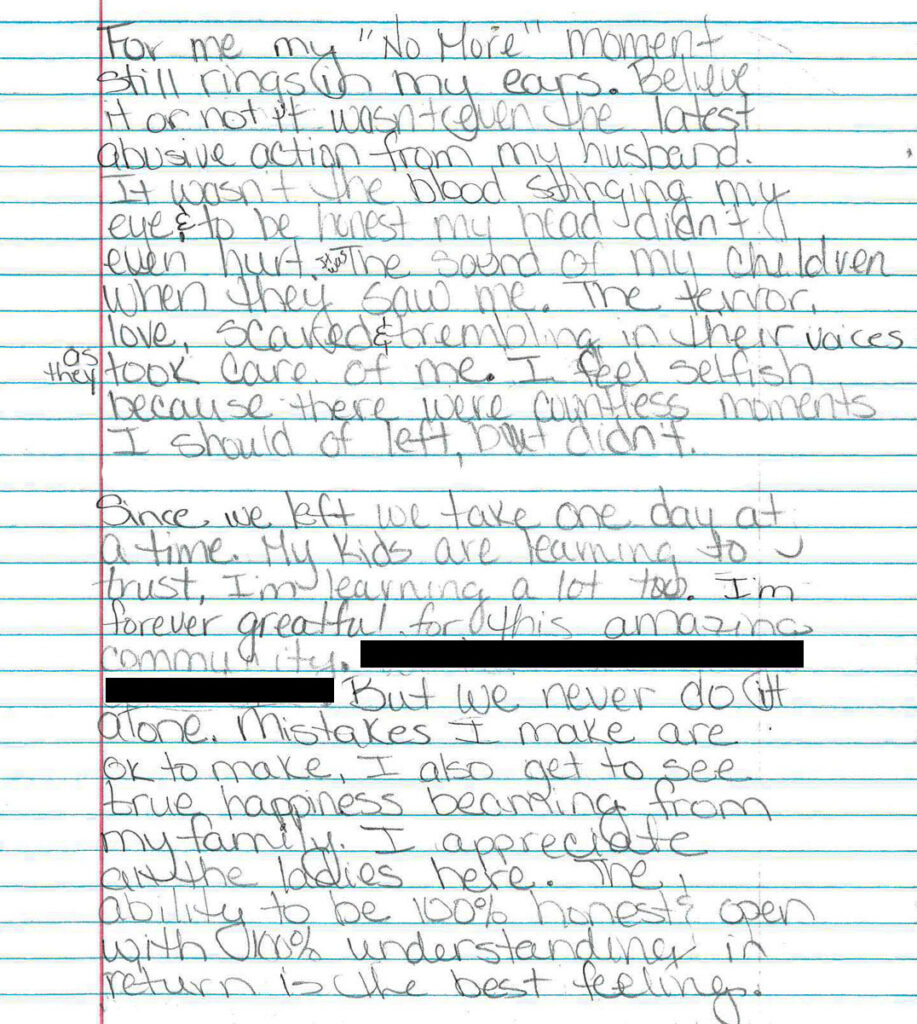 For me my "No More" moment
still rings in my ears. Believe
it or not it wasn't even the latest
abusive action from my husband.
It wasn't the blood stinging my
eye & to be honest my head didn't
even hurt. It was The sound of my children
when they saw me. The terror,
love, scared & trembling in their voices
as they took care of me. I feel selfish
because there were countless moments
I should of left, but didn't.
Since we left we take one day at
a time. My kids are learning to
trust, I'm learning a lot too. I'm
forever greatful for this amazing
community.
But we never do it
alone. Mistakes I make are
ok to make, I also get to see
true happiness beaming from
my family. I appreciate
all the ladies here. The
ability to be 100% honest & open
with 100% understanding in
return is the best feeling.